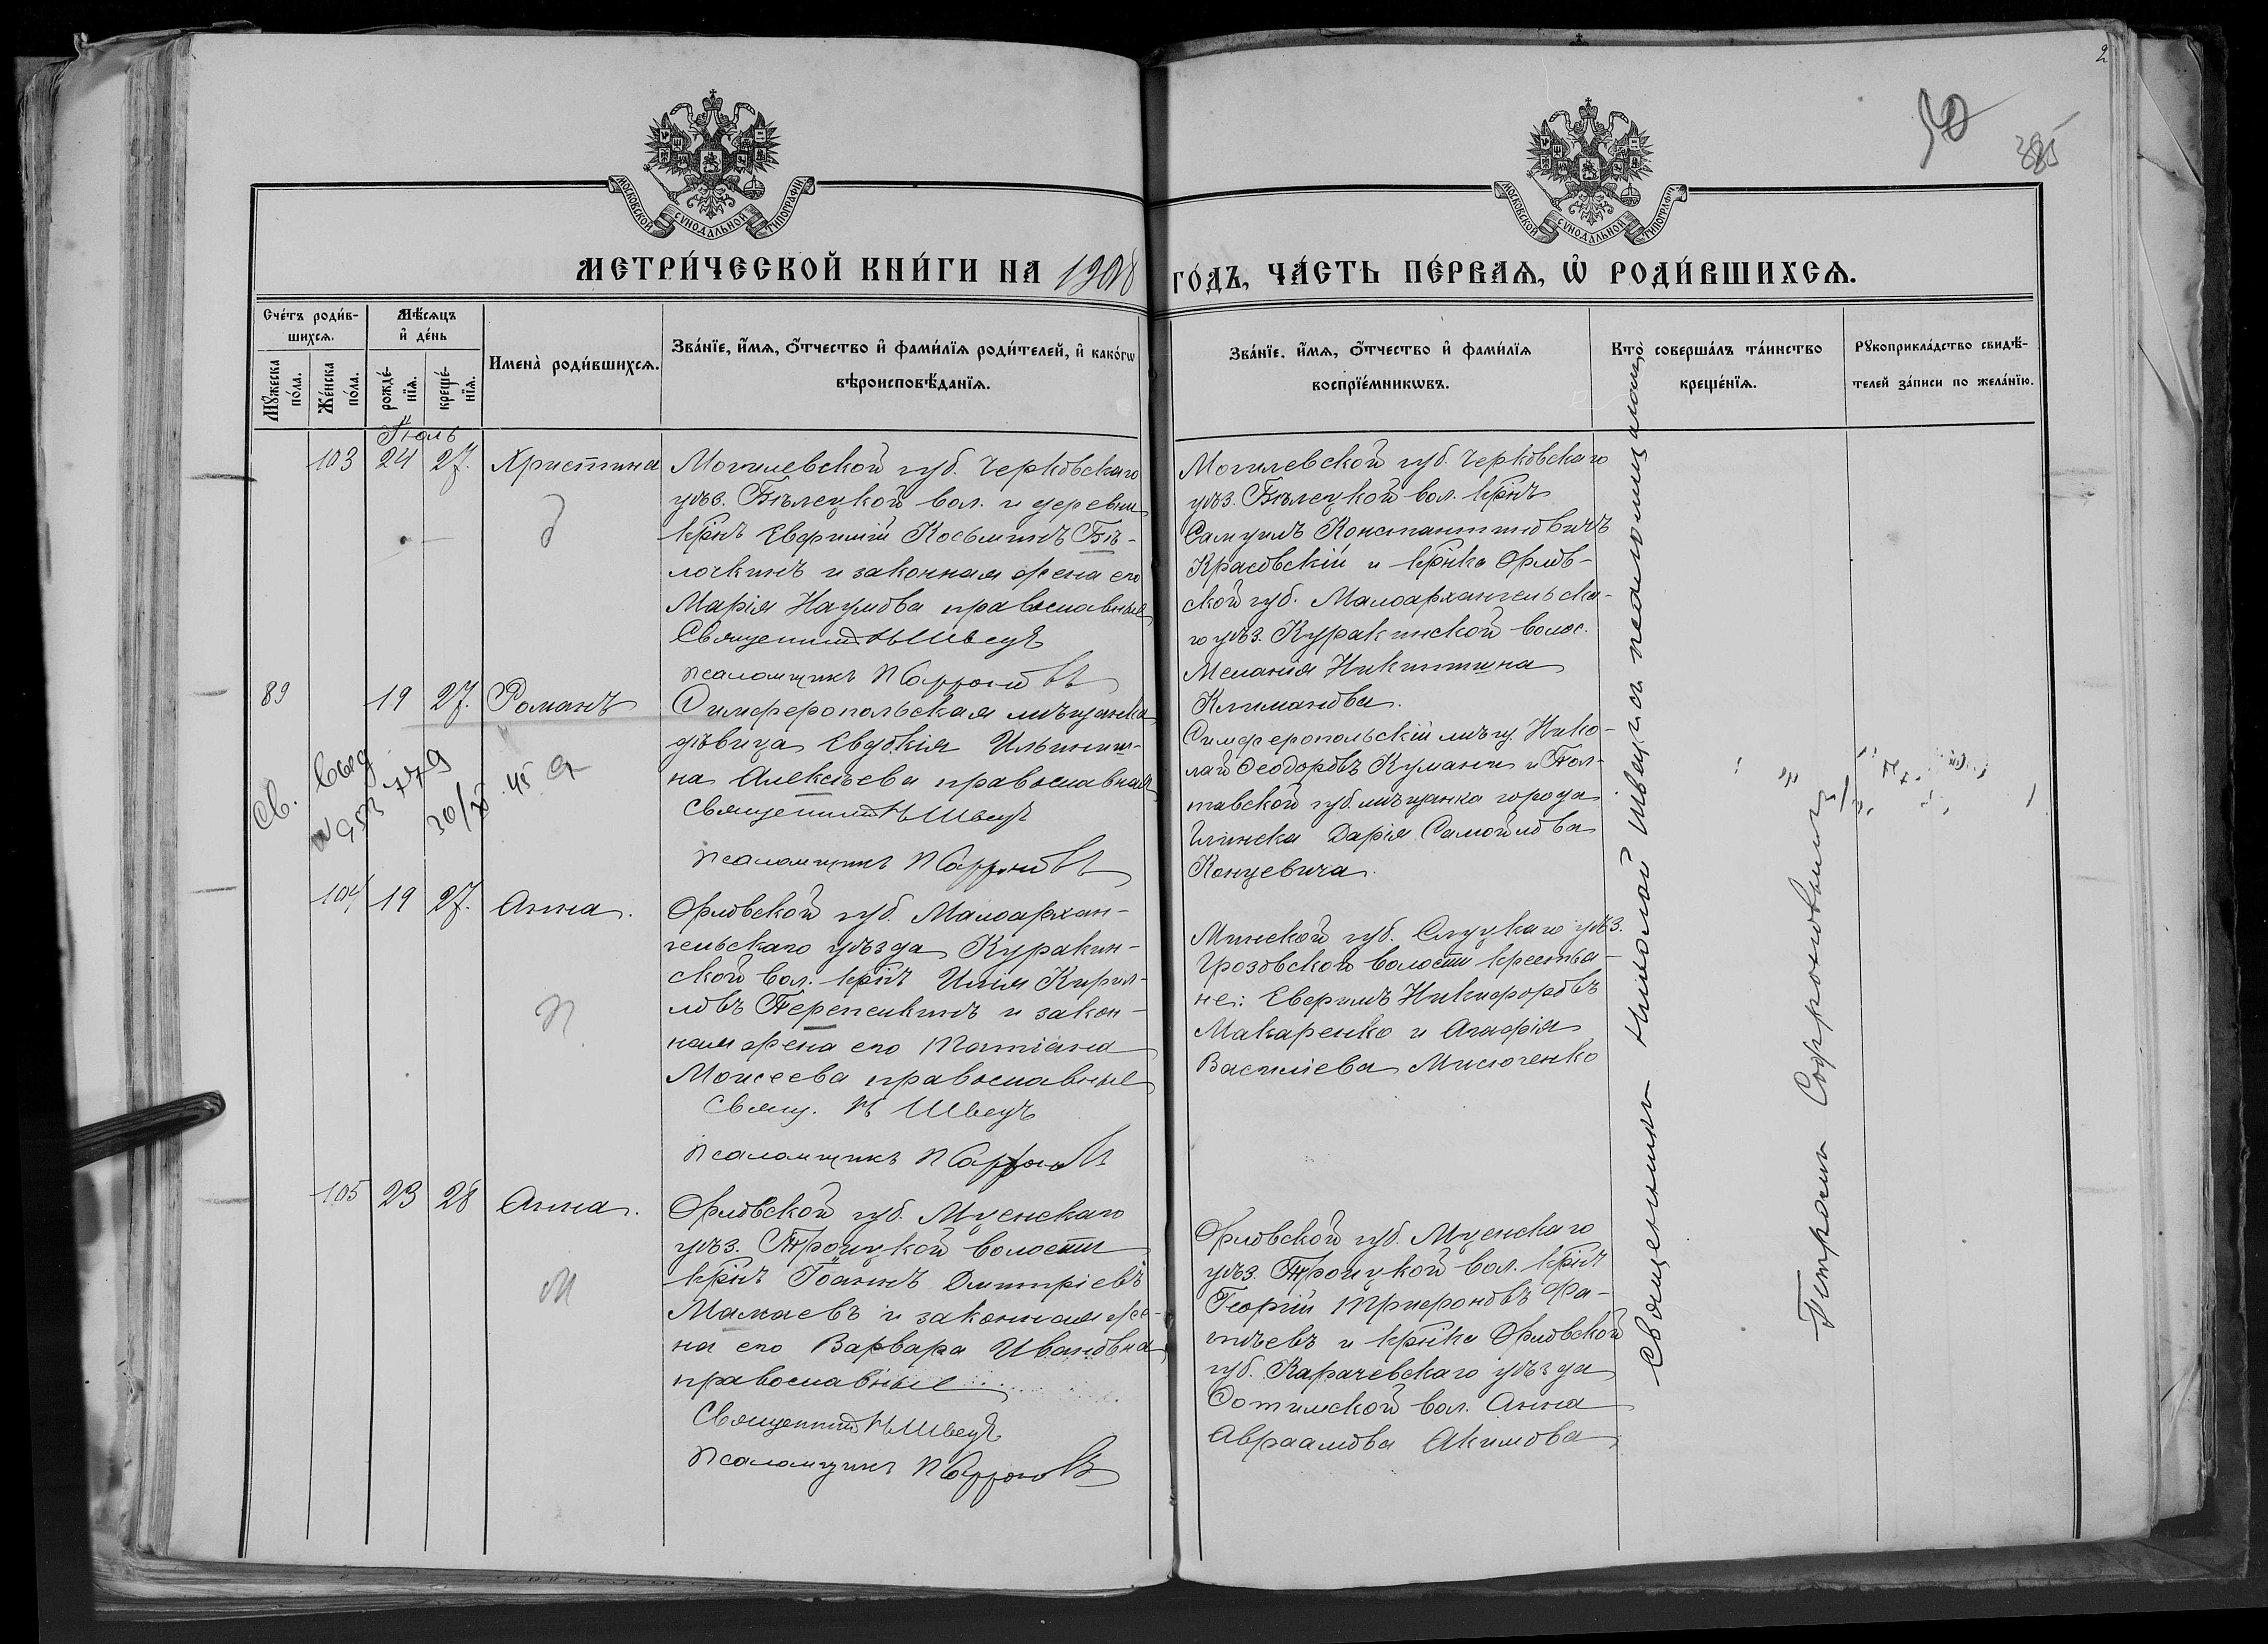 2
385
МОСКОВСКОЙ СѴНОДАЛЬНОЙ ТИПОГРАФІИ
МОСКОВСКОЙ СѴНОДАЛЬНОЙ ТИПОГРАФІИ
МЕТРИ́ЧЕСКОЙ КНИ́ГИ НА 1908 ГО́ДЪ, ЧА́СТЬ ПЕ́РВАѦ, Ѡ РОДИ́ВШИХСѦ.
Сче́тъ роди́в-
шихсѧ.
Мѣсѧцъ
и де́нь
Мꙋжеска
по́ла.
Же́нска
по́ла.
рожде́-
нїѧ.
креще́-
нїѧ.
Имена̀ роди́вшихсѧ.
Зва́нїе, и́мѧ, ѻ҆́тчество и фами́лїѧ роди́телей, и како́гѡ
вѣроисповѣ́данїѧ.
Зва́нїе, и́мѧ, ѻ҆́тчество и фами́лїѧ
воспрїе́мникѡвъ.
Кто̀ соверша́лъ та́инство
креще́нїѧ.
Рꙋкоприкла́дство свидѣ́-
телей за́писи по жела́нїю.
Іюль
103 24 27. Христина
Могилевской губ. Чериковскаго
уѣз. Бѣлецкой вол. и деревни
крнъ Евфимій Косьминъ Бѣ-
лочкинъ и законная жена его
Марія Наумова православные
Священникъ Н Швецъ
Псаломщикъ П Софроновъ
Могилевской губ. Чериковскаго
уѣз. Бѣлецкой вол. крнъ
Самуилъ Константиновичъ
Красовскій и крнка Орлов-
ской губ. Малоархангельска-
го уѣз. Куракинской волос.
Меланія Никитина
Климанова.
89 19 27. Романъ
Св. выд
30/X 45
Симферопольская мѣщанка
дѣвица Евдокія Ильинич-
на Алексѣева православная
Священникъ Н Швецъ
Псаломщикъ П Софроновъ
Симферопольскій мѣщ. Нико-
лай Ѳеодоровъ Кумани и Пол-
тавской губ. мѣщанка города
Глинска Дарія Самойлова
Концевича.
104 19 27. Анна.
Орловской губ. Малоархан-
гельскаго уѣзда Куракин-
ской вол. крнъ Илія Кирил-
ловъ Перепелкинъ и закон-
ная жена его Татіана
Моисеева православные
Свящ. Н Швецъ
Псаломщикъ П Софроновъ
Минской губ. Слуцкаго уѣз.
Грозовской волости крестья-
не: Евфимъ Никифоровъ
Макаренко и Агафія
Василіева Мисюченко
105 23 28 Анна.
Орловской губ. Мценскаго
уѣз. Троицкой волости
крнъ Іоаннъ Димитріевъ
Мамаевъ и законная же-
на его Варвара Ивановна
православные
Священникъ Н Швецъ
Псаломщикъ П Софроновъ
Орловской губ. Мценскаго
уѣз. Троицкой вол. крнъ
Георгій Трифоновъ Фа-
тѣевъ и крнка Орловской
губ. Карачевскаго уѣзда
вол. Анна
Авраамова Акимова
Священникъ Николай Швецъ съ псаломщикомъ
Петромъ Софроновымъ